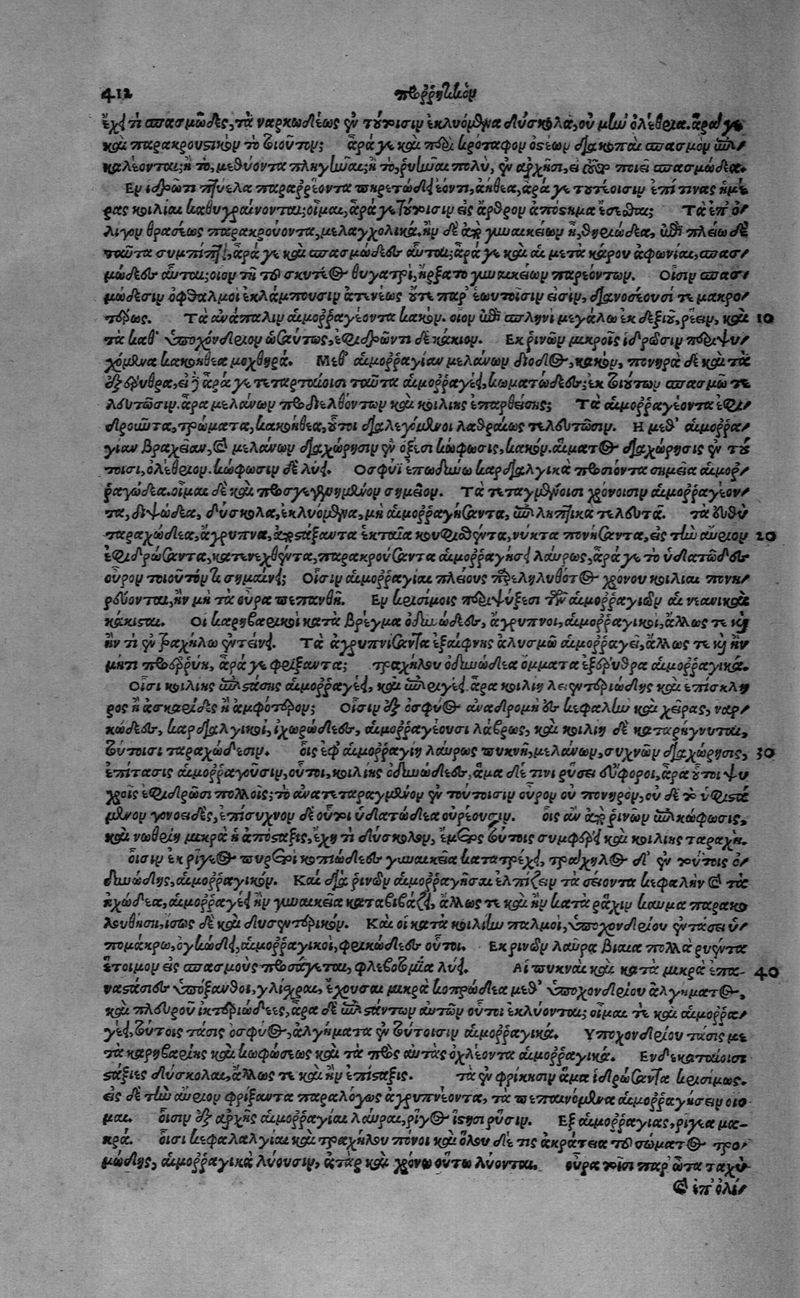 412 προῤῥητικὸν
ἔχῃ τι σπασμῶδες, τὰ ναρκωδέως ἐν τούτοισιν ἐκλυόμενα δύσκολα, οὐ μὴν ὀλέθρια. ἆρά γε
καὶ παρακρουστικὸν τὸ τοιοῦτον; ἆρά γε καὶ περὶ κρόταφον ὀστέων διακοπαὶ σπασμὸν ἐπι
καλέονται; ἢ τὸ, μεθύοντα πληγῆναι; ἢ τὸ, ῥυῆναι πολὺ, ἐν ἀρχῇσι, εἰ τοῦτο ποιεῖ σπασμώδεα.
Ἐν ἱδρῶτι πτύελα παραρρέοντα πυρετώδει ἐόντι, εὐήθεα, ἆρά γε τουτέοισιν ἐπί τινας ἡμέ
ρας κοιλίαι καθυγραίνονται; οἶμαι, ἆρά γε τούτοισιν εἰς ἄρθρον ἀπόστημα ἔσεσθαι; Τὰ ἐπ' ὀ/
λίγον θρασέως παρακρούοντα, μελαγχολικὰ, ἢν δὲ ἀπὸ γυναικείων ᾖ, θηριώδεα, ἐπὶ πλέω δὲ
ταῦτα συμπίπτει, ἆρά γε καὶ σπασμώδεες αὗται; ἆρά γε καὶ αἱ μετὰ κάρου ἀφωνίαι, σπασ/
μώδεες αὗται; οἷον τῇ τοῦ σκυτέος θυγατρὶ, ἤρξατο γυναικείων παρεόντων. Οἷσιν σπασ/
μώδεσιν ὀφθαλμοὶ ἐκλάμπουσιν ἀτενέως οὔτε παρ' ἑωυτοῖσιν εἰσὶν, διανοσέουσί τε μακρο/
τέρως. Τὰ ἀνάπαλιν αἱμορραγέοντα κακόν. οἷον ἐπὶ σπληνὶ μεγάλῳ ἐκ δεξιοῦ, ῥέειν, καὶ 10
τὰ καθ' ὑποχόνδριον ὡσαύτως, ἐφιδρῶντι δὲ κάκιον. Ἐκ ῥινῶν μικροῖς ἱδρῶσιν περιψυ/
χόμενα κακοήθεα μοχθηρά. Μεθ' αἱμορραγίαν μελάνων δίοδος, κακόν, πονηρὰ δὲ καὶ τὰ
ἐξέρυθρα, εἰ ἆρά γε τεταρταίοισι ταῦτα αἱμορραγέει, κωματώδεες; ἐκ τοιούτων σπασμῷ τε
λευτῶσιν. ἆρα μελάνων προδιελθόντων καὶ κοιλίης ἐπαρθείσης; Τὰ αἱμορραγέοντα ἐφι/
δροῦντα, τρώματα, κακοήθεα, οὗτοι διαλεγόμενοι λαθραίως τελευτῶσιν. Ἡ μεθ' αἱμορρα/
γίαν βραχεῖαν, καὶ μελάνων διαχώρησιν ἐν ὀξέσι κώφωσις, κακόν. αἵματος διαχώρησις ἐν τού
τοισι, ὀλέθριον. κώφωσιν δὲ λύει. Ὀσφύϊ ἐπωδύνῳ καρδιαλγικὰ προσιόντα σημεῖα αἱμορ/
ραγώδεα. οἶμαι δὲ καὶ προσγενόμενον σημεῖον. Τὰ τεταγμένοισι χρόνοισιν αἱμορραγέον/
τα, διψώδεα, δύσκολα, ἐκλυόμενα, μὴ αἱμορραγήσαντα, ἐπιληπτικὰ τελευτᾶ. τὰ εὐθὺ
ταραχώδεα, ἄγρυπνα, ἀποστάξαντα ἑκταῖα κουφισθέντα, νύκτα πονήσαντα, εἰς τὴν αὔριον 20
ἐφιδρώσαντα, κατενεχθέντα, παρακρούσαντα αἱμορραγήσει λάυρως, ἆρά γε τὸ ὑδατῶδες
οὖρον τοιοῦτόν τι σημαίνει; Οἷσιν αἱμορραγίαι πλείους προεληλυθότος χρόνου κοιλίαι πονη/
ρεύονται, ἢν μὴ τὰ οὖρα πεπανθῇ. Ἐν κρισίμοις περιψύξεσι τῶν αἱμορραγιῶν αἱ νεανικαὶ
κάκισται. Οἱ καρηβαρικοὶ κατὰ βρέγμα ὀδυνώδεες, ἄγρυπνοι, αἱμορραγικοὶ, ἄλλως τε κἢ
ἤν τι ἐν τραχήλῳ ἐντείνῃ. Τὰ ἀγρυπνήσαντα ἐξαίφνης ἀλυσμῷ αἱμορραγεῖ, ἄλλως τε κἢν
μήτι προερρύη, ἆρά γε φρίξαντα; τραχήλου ὀδυνώδεα ὄμματα ἐξέρυθρα αἱμορραγικά.
Οἷσι κοιλίης ἐπιστάσης αἱμορραγέει, καὶ ἐπιριγέει ἆρα κοιλίη λειεντεριώδης καὶ ἐπίσκλη
ρος ἢ ἀσκαρίδες ἢ ἀμφότερον; Οἷσιν ἐξ ὀσφύος ἀναδρομὴ ἐς κεφαλὴν καὶ χεῖρας, ναρ/
κώδεες, καρδιαλγικοὶ, ἰχωρώδεες, αἱμορραγέουσι λάβρως, καὶ κοιλίη δὲ καταρρήγνυται,
τούτοισι ταραχώδεσιν. οἷς ἐφ' αἱμορραγίῃ λάυρως πυκνῇ, μελάνων, συχνῶν διαχώρησις, 30
ἐπίτασις αἱμορραγοῦσιν, οὗτοι, κοιλίης ὀδυνώδεες, ἅμα δέ τινι φύσει εὔφοροι, ἆρα οὗτοι ψυ
χροῖς ἐφιδρῶσι πολλοῖς; τὸ ἀνατεταραγμένον ἐν τουτοισιν οὖρον οὐ πονηρὸν, οὐ δὲ τὸ ὑφιστά
μενον γονοειδὲς, ἐπίσυχνον δὲ οὗτοι ὑδατώδεα οὐρέουσιν. οἷς ἂν ἀπὸ ῥινῶν ἐπικώφωσις,
καὶ νωθρίη μικρὰ ἡ ἀπόσταξις, ἔχῃ τι δύσκολον, ἔμετος τούτοις συμφέρει καὶ κοιλίης ταραχή.
οἷσιν ἐκ ῥίγεος πυρετοὶ κοπιώδεες γυναικεῖα κατατρέχει, τράχηλος δ' ἐν τούτοις ὀ/
δυνώδης, αἱμορραγικόν. Καὶ διὰ ῥινῶν αἱμορραγῆσαι ἐλπίζειν τὰ σείοντα κεφαλὴν καὶ τὰ
ἠχώδεα, αἱμορραγέει ἢν γυναικεῖα καταβιβάζῃ, ἄλλως τε καὶ ἢν κατὰ ῥάχιν καῦμα παρακο
λουθήσῃ, ἴσως δὲ καὶ δυσεντερικόν. Καὶ οἱ κατὰ κοιλίην παλμοὶ, ὑποχονδρίου ἐντάσει ὑ/
πομάκρῳ, ὀγκώδει, αἱμορραγικοὶ, φρικώδεες οὗτοι. Ἐκ ῥινῶν λαῦρα βίαια πολλὰ ῥυέντα
ἕτοιμον εἰς σπασμοὺς προσάγεται, φλεβοτομίη λύει. Αἱ πυκναὶ καὶ κατὰ μικρὰ ἐπα- 40
ναστάσιες ὑπόξανθοι, γλίσχραι, ἔχουσαι μικρὰ κοπρώδεα μεθ' ὑποχονδρίου ἀλγήματος,
καὶ πλευροῦ ἰκτεριώδεες, ἆρα δὲ ἐπιστάντων αὐτῶν οὗτοι ἐκλύονται; οἶμαί τε καὶ αἱμορρα/
γέει, τούτοις τάσις ὀσφύος, ἀλγήματα ἐν τούτοισιν αἱμορραγικά. Ὑποχονδρίου τάσις με
τὰ καρηβαρίης καὶ κωφώσεως καὶ τὰ πρὸς αὐγὰς ὀχλέοντα αἱμορραγικά. Ἑνδεκαταῖοισι
στάξιες δύσκολαι, ἄλλως τε καὶ ἢν ἐπιστάξῃς. τὰ ἐν φρίκῃσιν ἅμα ἱδρώσαντα κρισίμως.
εἰς δὲ τὴν αὔριον φρίξαντα παραλόγως ἀγρυπνέοντα, τὰ πεπαινόμενα αἱμορραγήσειν οἴο
μαι. οἷσιν ἐξ ἀρχῆς αἱμορραγίαι λαῦραι, ῥῖγος ἵστησι ῥύσιν. Ἐξ αἱμορραγίας, ῥίγεα μα-
κρά. οἷσι κεφαλαλγίαι καὶ τραχήλου πόνοι καὶ ὅλου δέ τις ἀκράτεια τοῦ σώματος τρο/
μώδης, αἱμορραγικὰ λύουσιν, ἀτὰρ καὶ χρόνῳ οὕτω λύονται. οὖρα τοῖσι παρ' ὦτα ταχὺ
καὶ ἐπ' ὀλί/